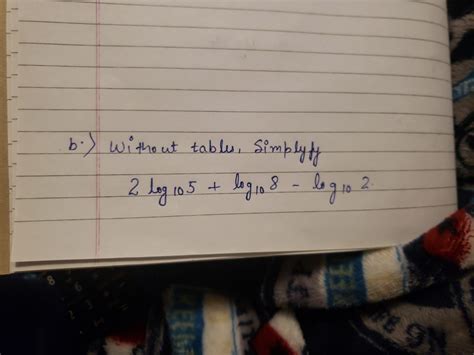 b.) Without tables, Simplyfy
2 log₁₀5 + log₁₀8 - log₁₀2.